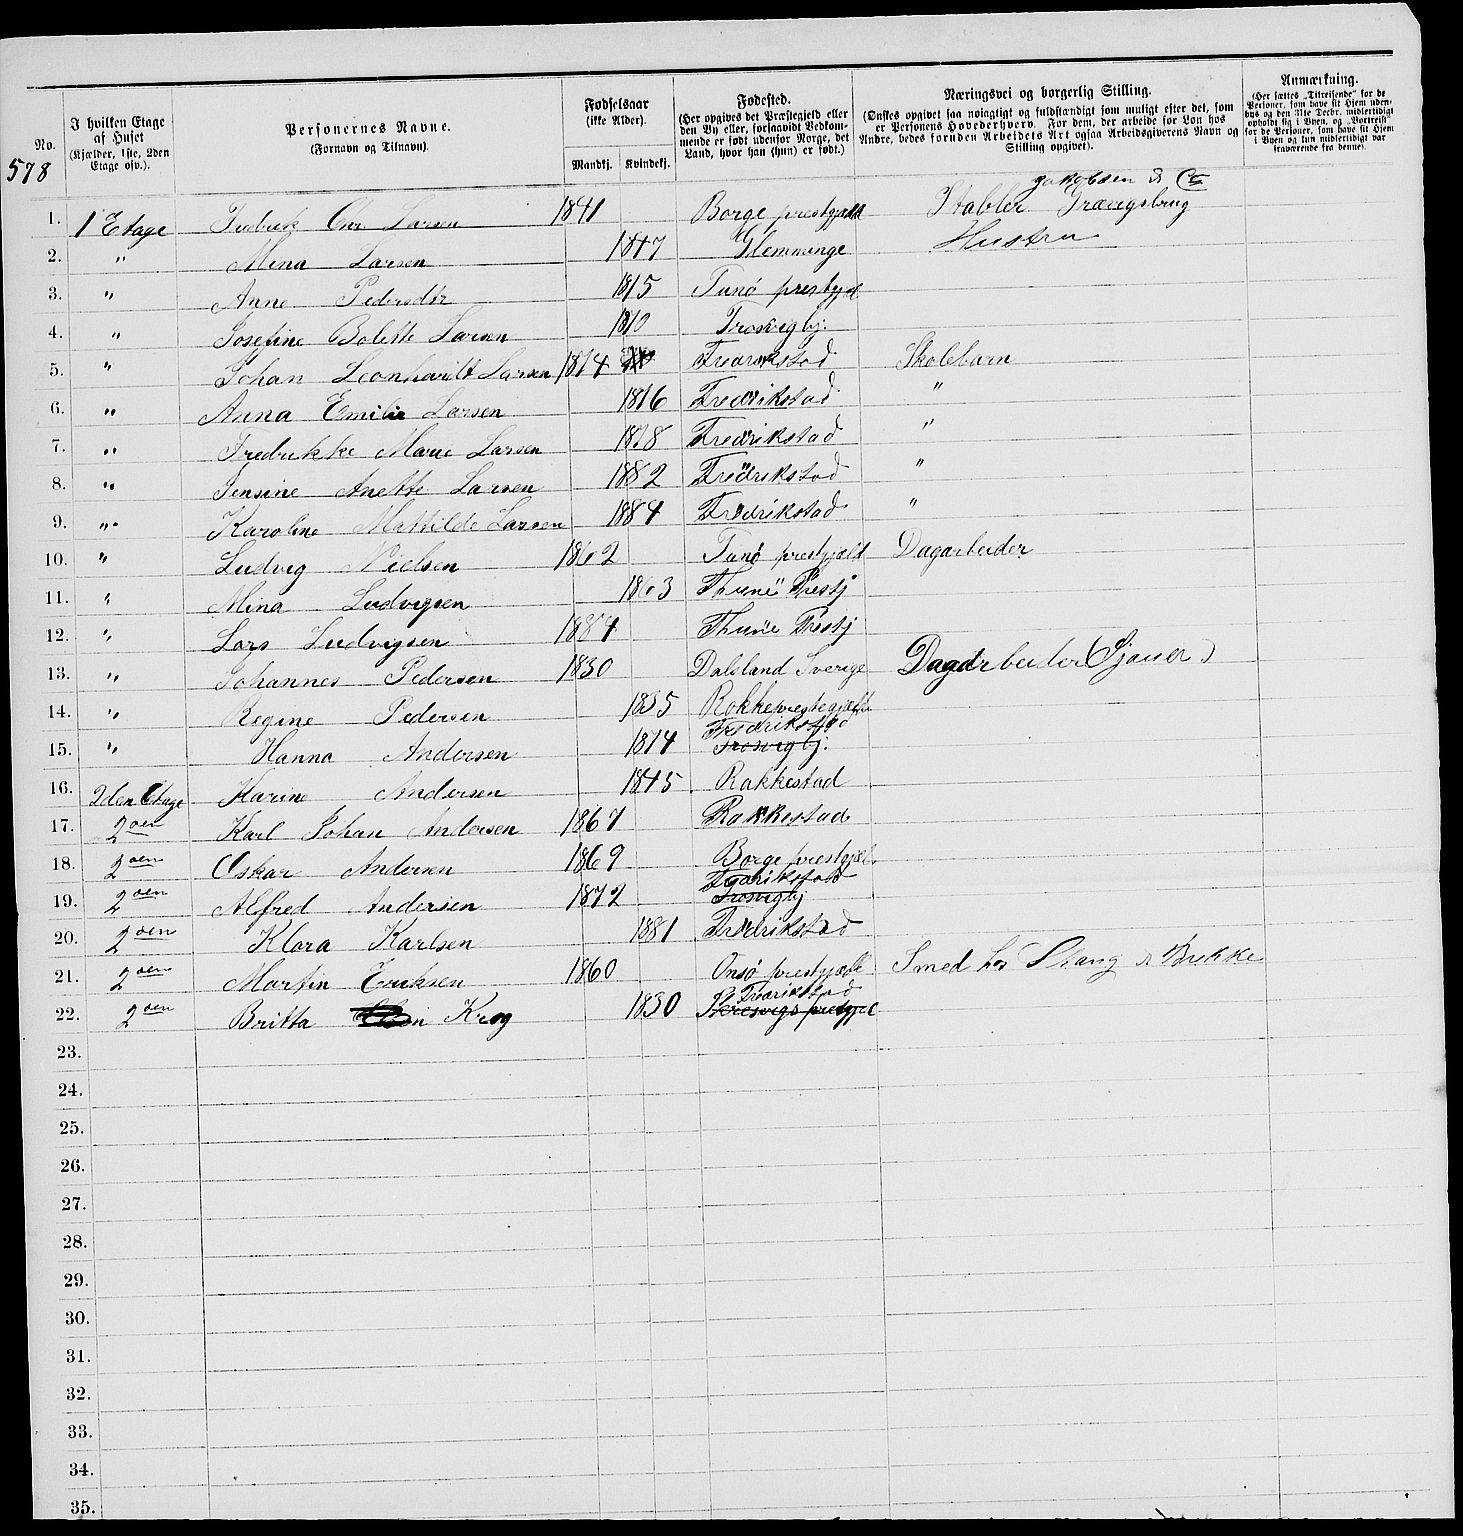 No.
578
I hvilken Etage
af Huset
(Kjælder, 1ste, 2den
Etage osv.).
Personernes Navne.
(Fornavn og Tilnavn).
Fødselsaar
(ikke Alder).
Mandkj. Kvindekj.
Fødested.
(Her opgives det Præstegjeld eller
den By eller, forsaavidt Vedkom-
mende er født udenfor Norge, det
Land, hvor han (hun) er født.)
Næringsvei og borgerlig Stilling.
(Ønskes opgivet saa nøiagtigt og fuldstændigt som muligt efter det, som
er Personens Hovederhverv. For dem, der arbeide for Løn hos
Andre, bedes foruden Arbeidets Art ogsaa Arbeidsgiverens Navn og
Stilling opgivet).
Anmærkning.
(Her sættes „Tilreisende" for de
Personer, som have sit Hjem uden-
bys og den 31te Decbr. midlertidigt
opholdt sig i Byen, og „Bortreist"
for de Personer, som have sit Hjem
i Byen og kun midlertidigt var
fraværende fra denne).
Jakobsen & Co
1. 1 Etage Fredrik Chr Larsen 1841 Borge prestgjeld Stabler
2. " Mina Larsen 1847 Glemminge Hustru
3. " Anne Pedersdtr 1815 Tunø prestgjel
4. " Josefine Bolette Larsen 1870 Trosvigbj.
5. " Johan Leonhardt Larsen 1874 Fredrikstad Skolebarn
6. " Anna Emilie Larsen 1876 Fredrikstad "
7. " Fredrikke Marie Larsen 1878 Fredrikstad "
8. " Jensine Anette Larsen 1882 Fredrikstad "
9. " Karoline Mathilde Larsen 1884 Fredrikstad "
10. " Ludvig Nielsen 1862 Tunø prestgjeld Dagarbeider
11. " Mina Ludvigsen 1863 Thunø Prestj
12. " Lars Ludvigsen 1884 Thunø Prestj
13. " Johannes Pedersen 1830 Dalsland Sverige Dagarbeider (Sjauer)
14. " Regine Pedersen 1835 Rokke prestegjeld
Fredrikstad
15. " Hanna Andersen 1874 Trosvigbj.
16. 2den Etage Karine Andersen 1845 Rakkestad
17. 2den Karl Johan Andersen 1867 Rakkestad
18. 2den Oskar Andersen 1869 Borge prestgjel
Fredrikstad
19. 2den Alfred Andersen 1872 Trosvigbj
20. 2den Klara Karlsen 1881 Fredrikstad
21. 2den Martin Eriksen 1860 Onsø prestgjeld Smed hos Stang & Bukke
Fredrikstad
22. 2den Britta Krog 1830 prestgjel
23.
24.
25.
26.
27.
28.
29.
30.
31.
32.
33.
34.
35.